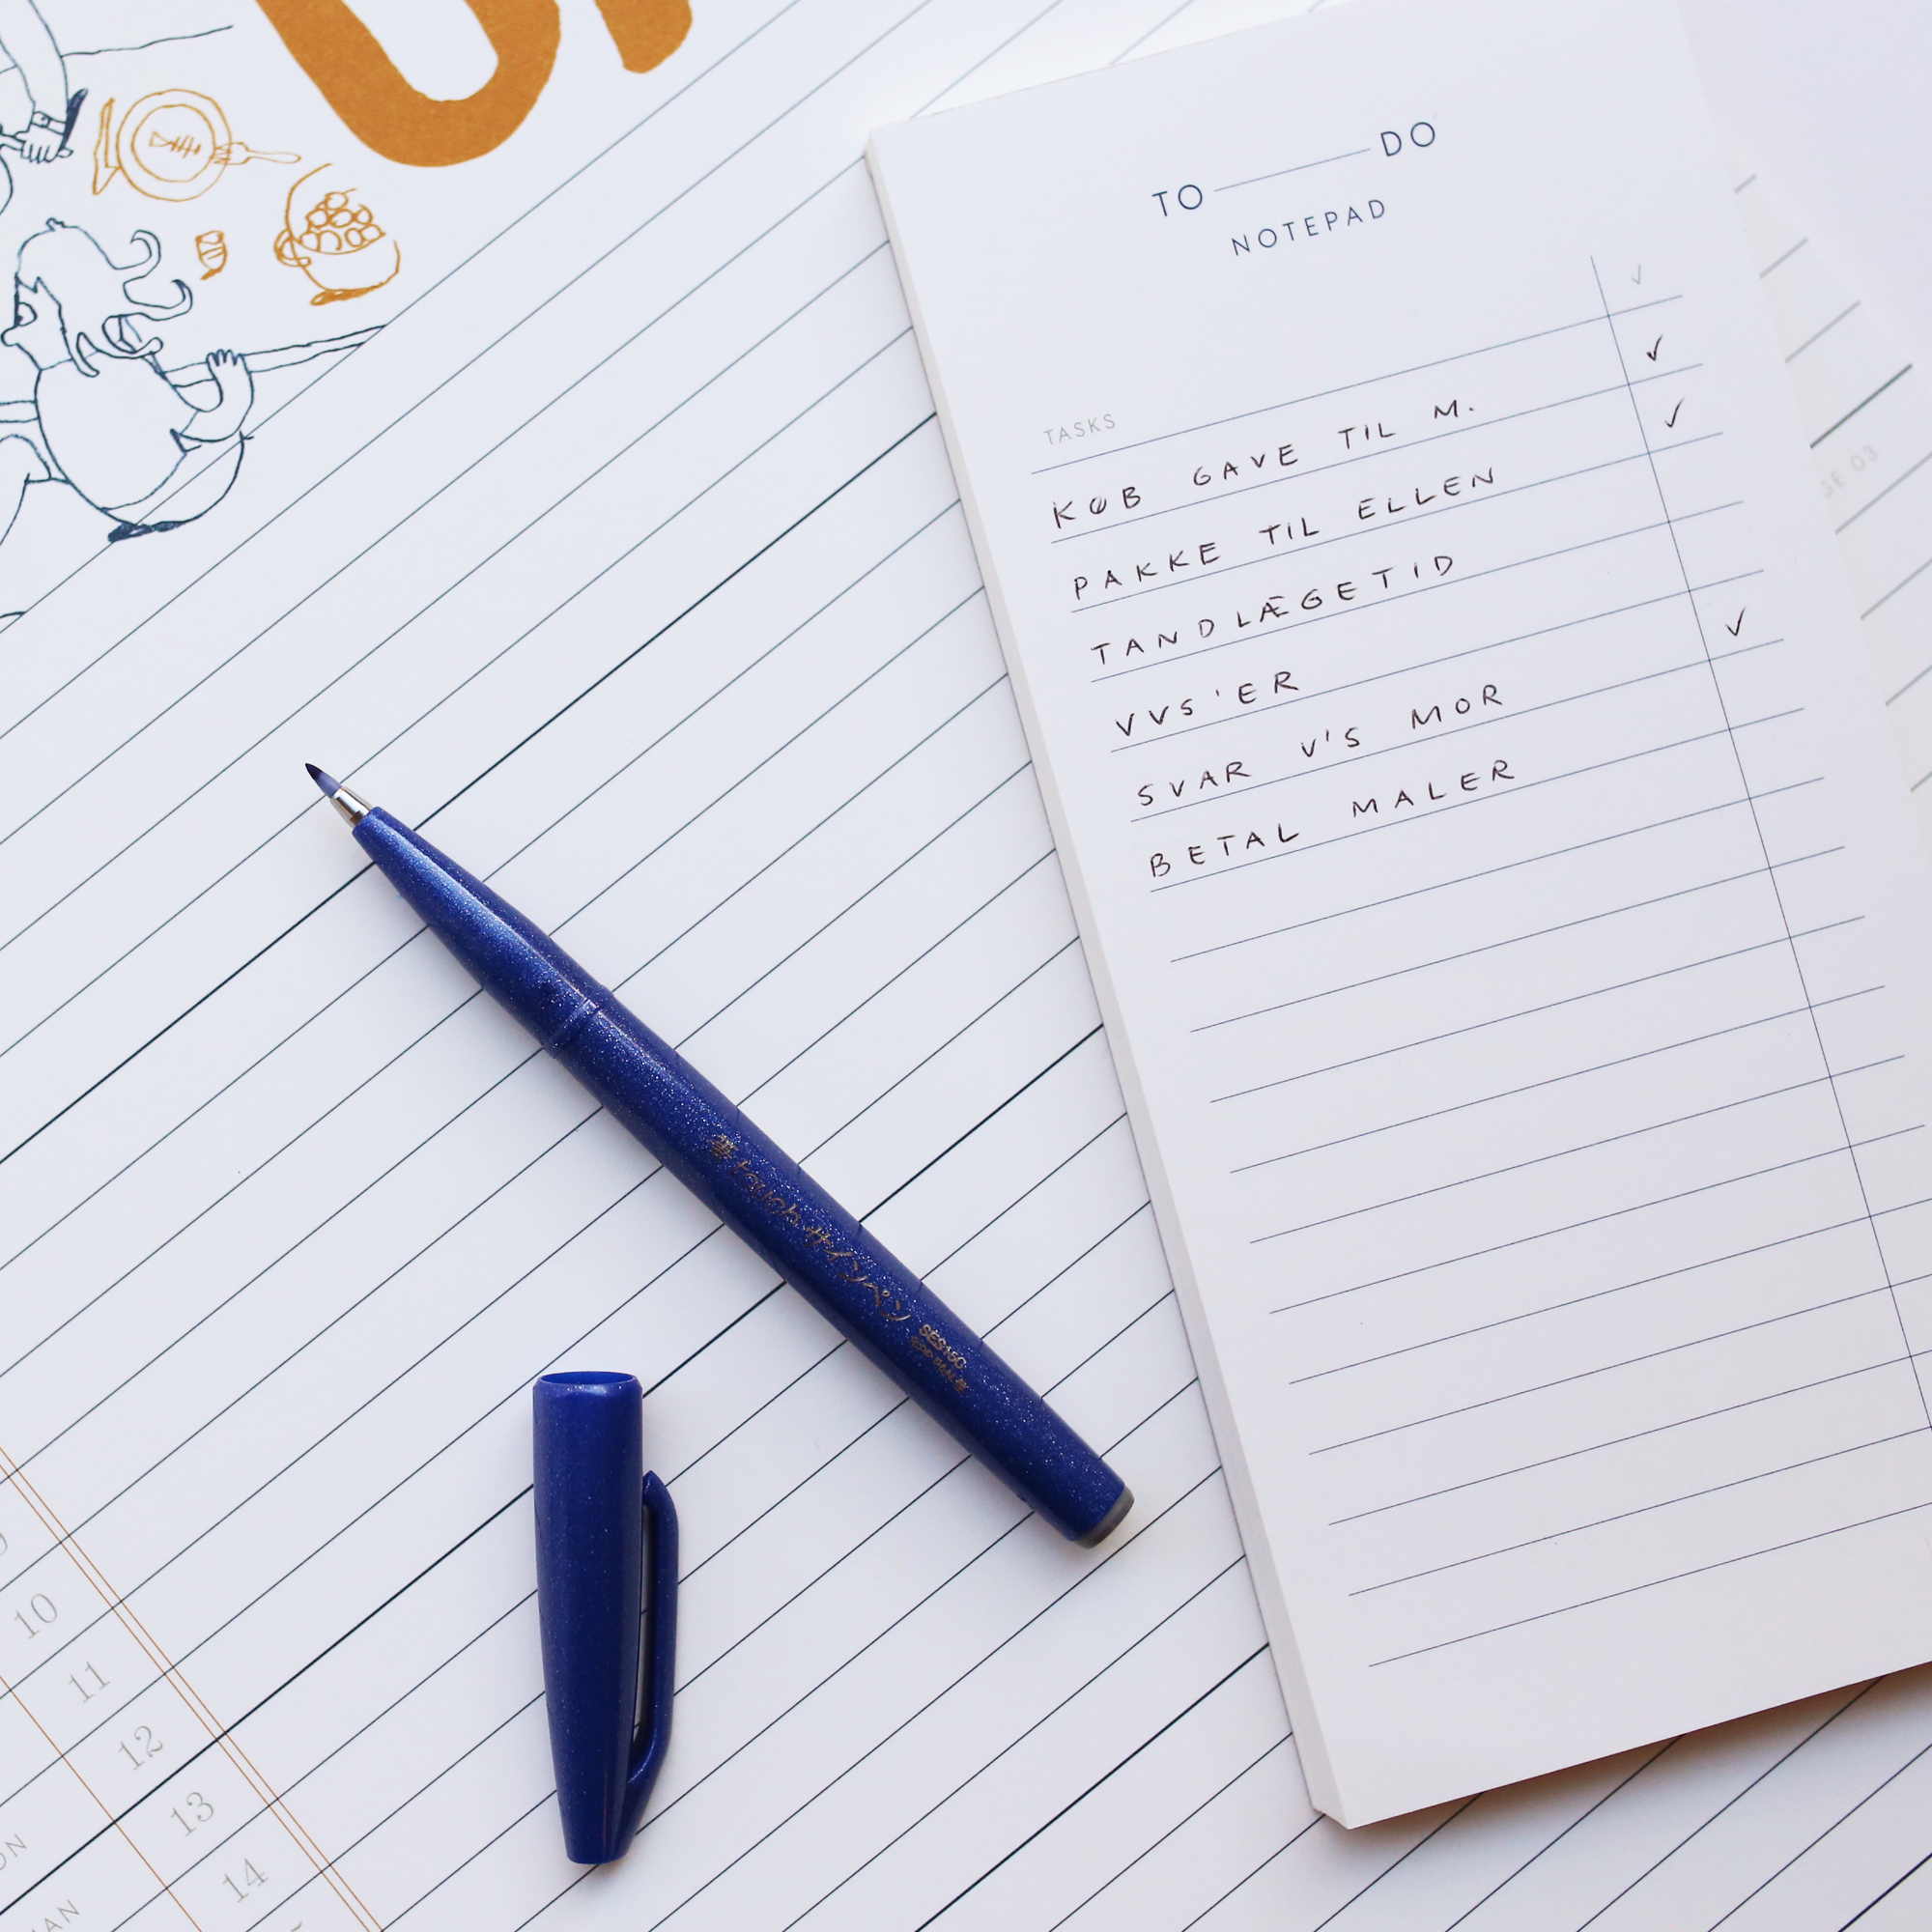 TO DO
NOTEPAD
TASKS
KØB GAVE TIL M.
PAKKE TIL ELLEN
TANDLÆGETID
VVS'ER
SVAR V'S MOR
BETAL MALER
筆touchサインペン
SES15C
10
11
12
13
14